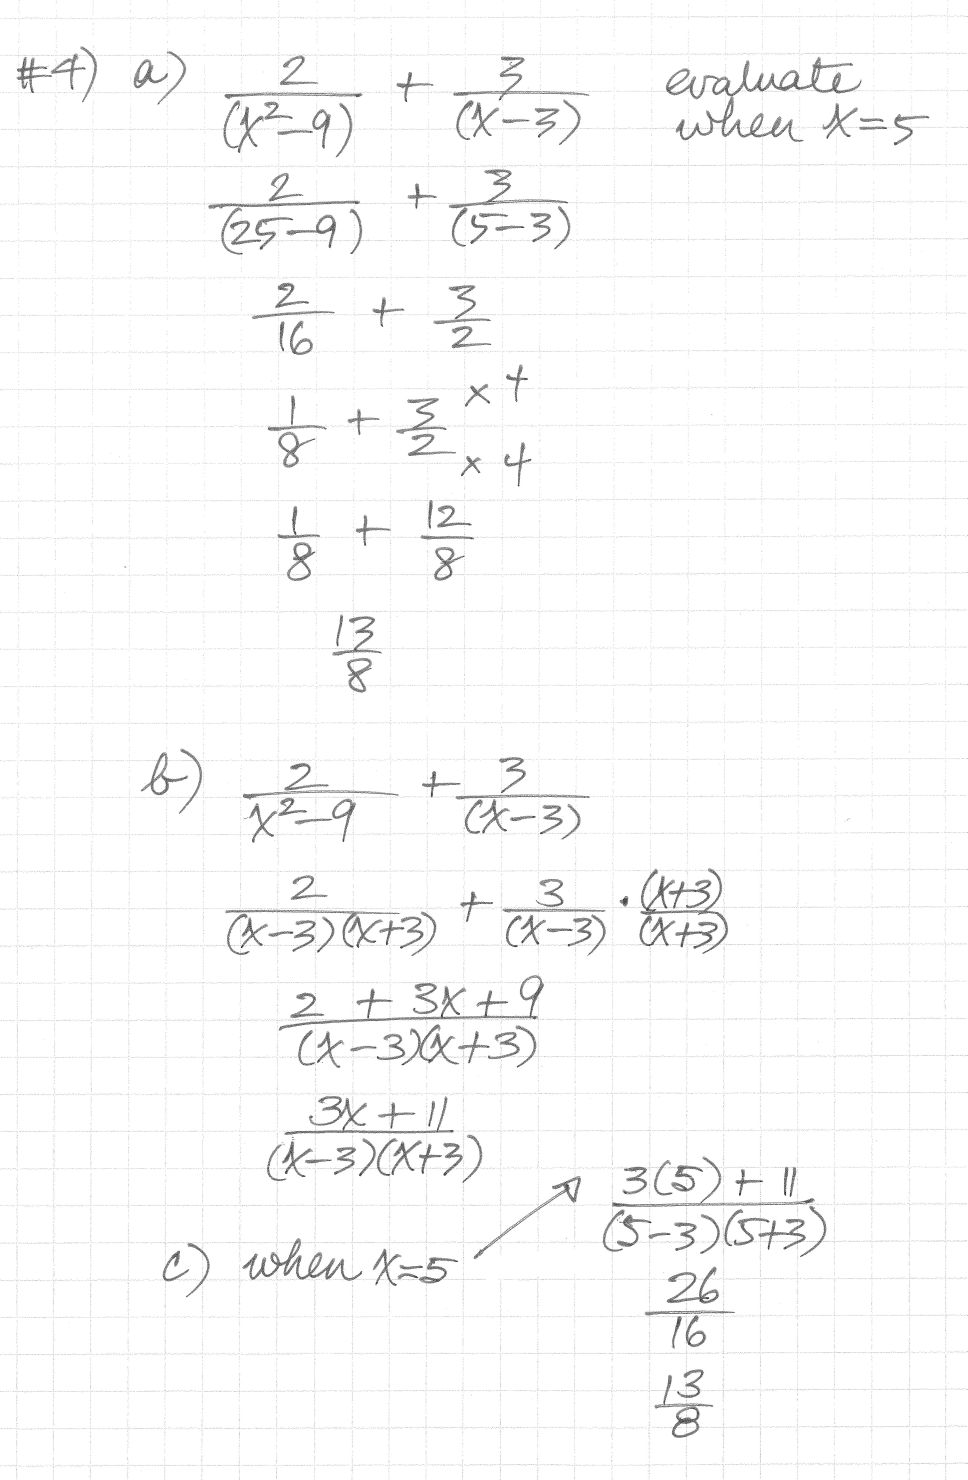 #4) a) 2/(x²-9) + 3/(x-3) evaluate when x=5
2/(25-9) + 3/(5-3)
2/16 + 3/2
1/8 + 3/2 x 4 x 4
1/8 + 12/8
13/8
b) 2/x²-9 + 3/(x-3)
2/(x-3)(x+3) + 3/(x-3) · (x+3)/(x+3)
2 + 3x + 9/(x-3)(x+3)
3x + 11/(x-3)(x+3)
c) when x=5
3(5) + 11/(5-3)(5+3)
26/16
13/8